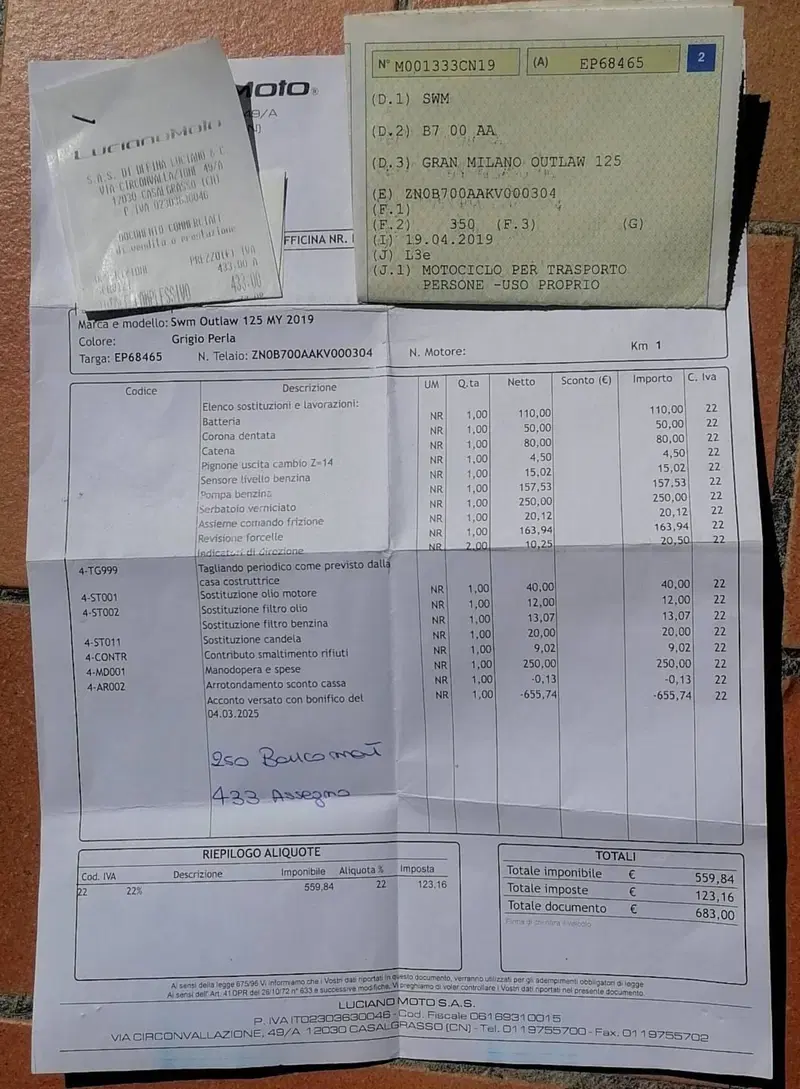 N° M001333CN19 (A) EP68465 2
(D.1) SWM
(D.2) B7 00 AA
(D.3) GRAN MILANO OUTLAW 125
(E) ZN0B700AAKV000304
(F.1)
(F.2) 350 (F.3) (G)
(I) 19.04.2019
(J) L3e
(J.1) MOTOCICLO PER TRASPORTO
PERSONE -USO PROPRIO
LUCIANOMOTO
S.A.S. DI DEPINA LUCIANO & C.
VIA CIRCONVALLAZIONE 49/A
12030 CASALGRASSO (CN)
P.IVA 02303630046
DOCUMENTO COMMERCIALE
di vendita o prestazione
PREZZO(€) IVA
433,00 A
433,00
Moto
49/A
OFFICINA NR.
Marca e modello: Swm Outlaw 125 MY 2019
Colore: Grigio Perla
Targa: EP68465 N. Telaio: ZN0B700AAKV000304 N. Motore: Km 1
Codice Descrizione UM Q.ta Netto Sconto (€) Importo C. Iva
Elenco sostituzioni e lavorazioni:
Batteria NR 1,00 110,00 110,00 22
Corona dentata NR 1,00 50,00 50,00 22
Catena NR 1,00 80,00 80,00 22
Pignone uscita cambio Z=14 NR 1,00 4,50 4,50 22
Sensore livello benzina NR 1,00 15,02 15,02 22
Pompa benzina NR 1,00 157,53 157,53 22
Serbatoio verniciato NR 1,00 250,00 250,00 22
Assieme comando frizione NR 1,00 20,12 20,12 22
Revisione forcelle NR 1,00 163,94 163,94 22
Indicatori di direzione NR 2,00 10,25 20,50 22
4-TG999 Tagliando periodico come previsto dalla
casa costruttrice
4-ST001 Sostituzione olio motore NR 1,00 40,00 40,00 22
4-ST002 Sostituzione filtro olio NR 1,00 12,00 12,00 22
Sostituzione filtro benzina NR 1,00 13,07 13,07 22
4-ST011 Sostituzione candela NR 1,00 20,00 20,00 22
4-CONTR Contributo smaltimento rifiuti NR 1,00 9,02 9,02 22
4-MD001 Manodopera e spese NR 1,00 250,00 250,00 22
4-AR002 Arrotondamento sconto cassa NR 1,00 -0,13 -0,13 22
Acconto versato con bonifico del NR 1,00 -655,74 -655,74 22
04.03.2025
250 Bancomat
433 Assegno
RIEPILOGO ALIQUOTE
Cod. IVA Descrizione Imponibile Aliquota % Imposta
22 22% 559,84 22 123,16
TOTALI
Totale imponibile € 559,84
Totale imposte € 123,16
Totale documento € 683,00
Ai sensi della legge 675/96 Vi informiamo che i Vostri dati riportati in questo documento, verranno utilizzati per gli adempimenti obbligatori di legge
Ai sensi dell'Art. 41 DPR del 26/10/72 n° 633 e successive modifiche, Vi preghiamo di voler controllare i Vostri dati riportati nel presente documento.
LUCIANO MOTO S.A.S.
P. IVA IT02303630046 - Cod. Fiscale 06169310015
VIA CIRCONVALLAZIONE, 49/A 12030 CASALGRASSO (CN) - Tel. 011 9755700 - Fax. 011 9755702